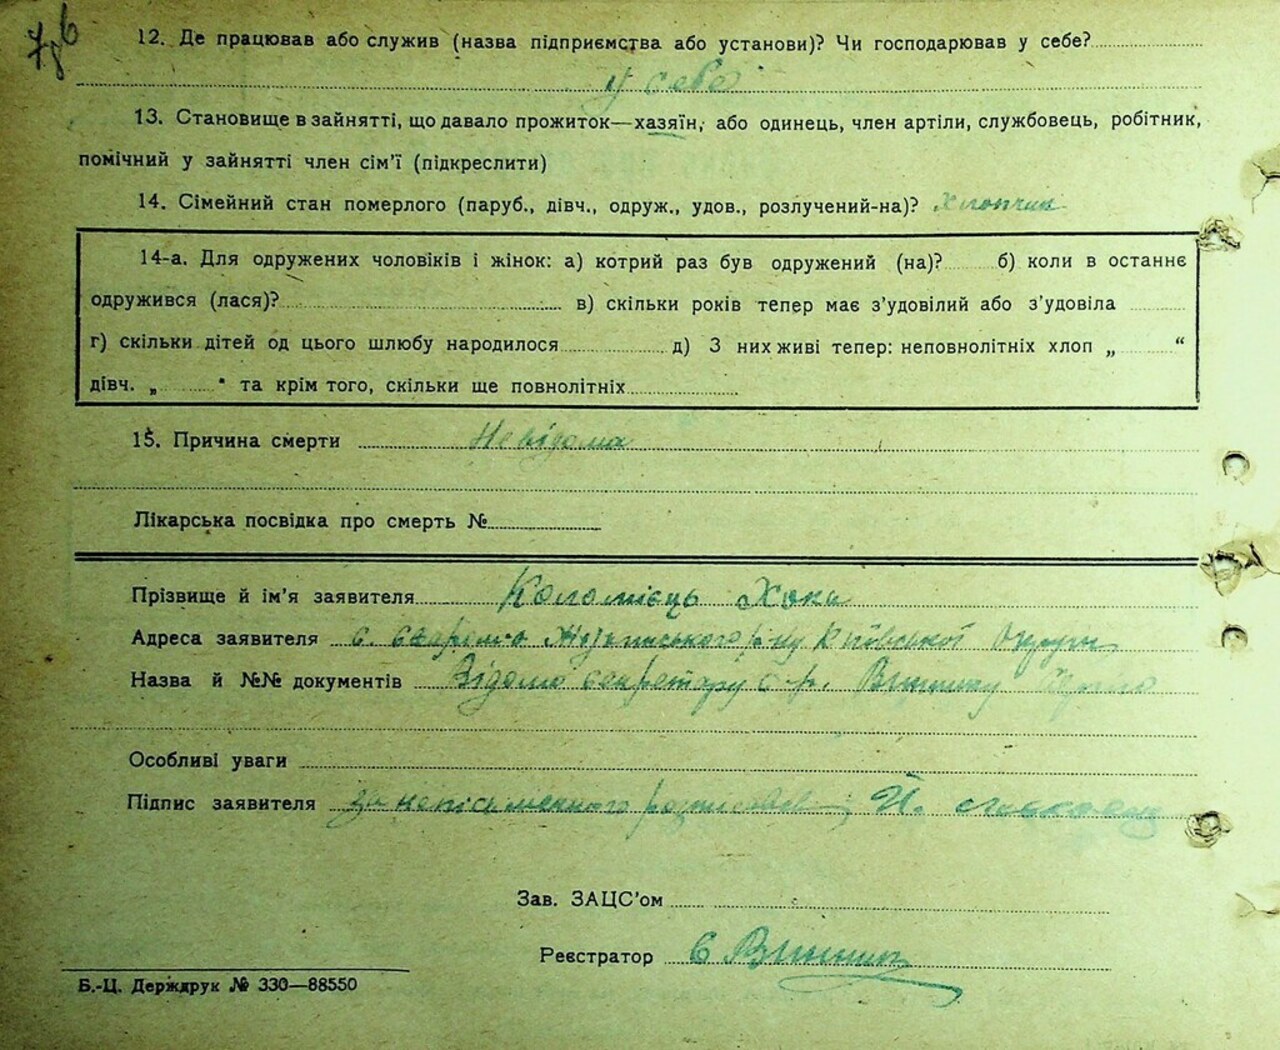 12. Де працював або служив (назва підприємства або установи)? Чи господарював у себе?
у себе
13. Становище в зайнятті, що давало прожиток—хазяїн, або одинець, член артіли, службовець, робітник,
помічний у зайнятті член сім'ї (підкреслити)
14. Сімейний стан померлого (паруб., дівч., одруж., удов., розлучений-на)? Хлопчик
14-а. Для одружених чоловіків і жінок: а) котрий раз був одружений (на)? б) коли в останнє
одружився (лася)? в) скільки років тепер має з'удовілий або з'удовіла
г) скільки дітей од цього шлюбу народилося д) З них живі тепер: неповнолітніх хлоп „ “
дівч. „ “ та крім того, скільки ще повнолітніх
15. Причина смерти Невідома
Лікарська посвідка про смерть №
Прізвище й ім'я заявителя Коломієць
Адреса заявителя с. Київської Округи
Назва й №№ документів Відомо секретару с-р.
Особливі уваги
Підпис заявителя за неписьменного розписався
Зав. ЗАЦС'ом
Реєстратор
Б.-Ц. Держдрук № 330—88550